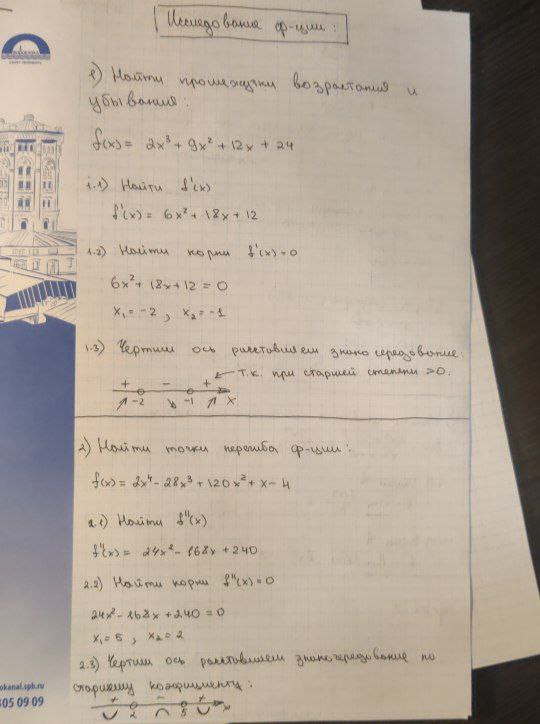 Исследование ф-ции:
1) Найти промежутки возрастания и
убывания:
f(x) = 2x³ + 9x² + 12x + 24
1.1) Найти f'(x)
f'(x) = 6x² + 18x + 12
1.2) Найти корни f'(x) = 0
6x² + 18x + 12 = 0
x₁ = -2 , x₂ = -1
1.3) Чертим ось расставляем знакочередование:
+ - + ← т.к. при старшей степени >0.
↗ -2 ↘ -1 ↗ x
2) Найти точки перегиба ф-ции:
f(x) = 2x⁴ - 28x³ + 120x² + x - 4
2.1) Найти f''(x)
f''(x) = 24x² - 168x + 240
2.2) Найти корни f''(x) = 0
24x² - 168x + 240 = 0
x₁ = 5 , x₂ = 2
2.3) Чертим ось расставляем знакочередование по
старшему коэфициенту:
+ - +
2 5 x
ВОДОКАНАЛ
САНКТ-ПЕТЕРБУРГ
okanal.spb.ru
305 09 09